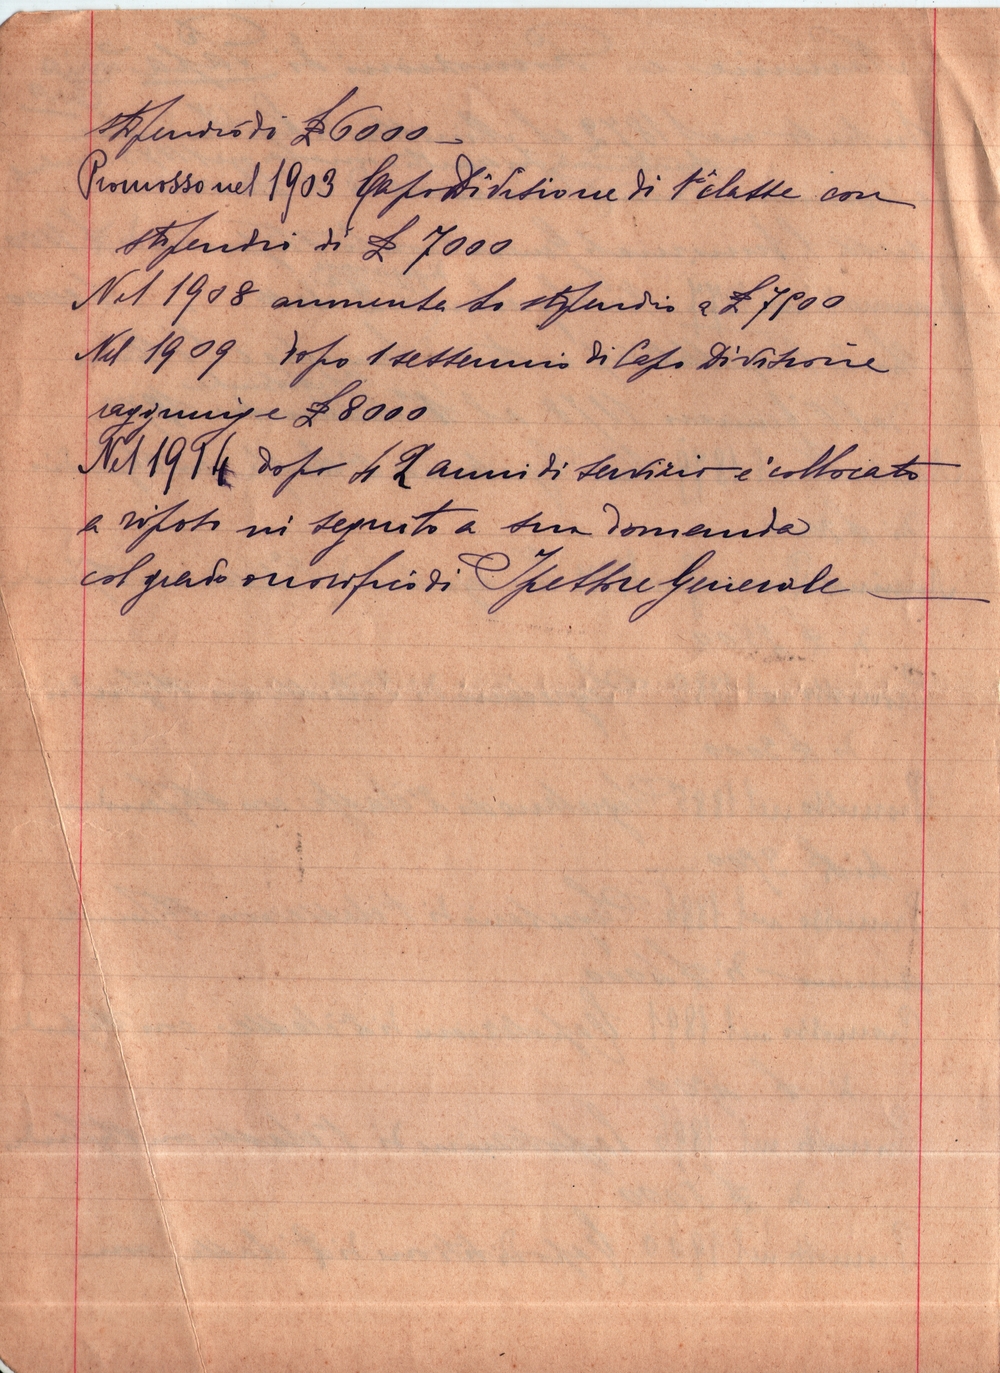 stipendio di £ 6000 _
Promosso nel 1903 Capo Divisione di 1ª classe con
stipendio di £ 7000
Nel 1908 aumenta lo stipendio a £ 7500
Nel 1909 dopo 1 settennio di Capo Divisione
raggiunge £ 8000
Nel 1914 dopo 42 anni di servizio è collocato
a riposo in seguito a sua domanda
col grado onorifico di Ispettore Generale